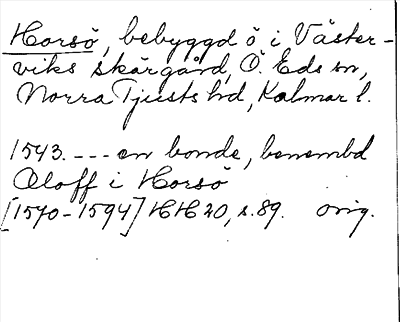 Horsö, bebyggd ö i Väster-
viks skärgård, Ö. Eds sn,
Norra Tjusts hd, Kalmar l.
1543. --- en bonde, benembd
Oloff i Horsö
[1540-1594] HH 20, s. 89. orig.